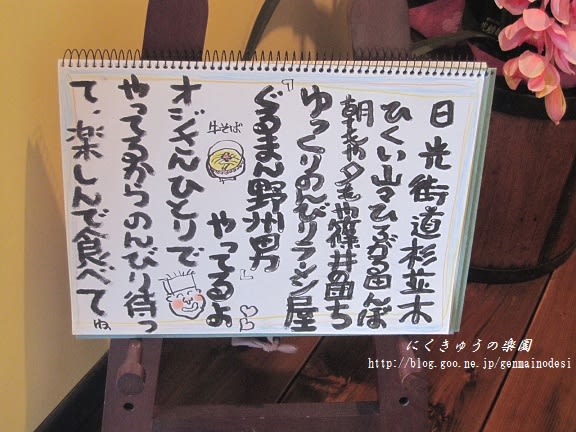 日光街道杉並木
ひくい山々ひろがる田んぼ
朝もや夕もや篠井の面ち
ゆっくりのんびりラーメン屋
『ぐるまん野州男』
やってるよ
牛そば
オジさんひとりで
やってるからのんびり待っ
て、楽しんで食べてね
にくきゅうの楽園
http://blog.goo.ne.jp/genmainodesi